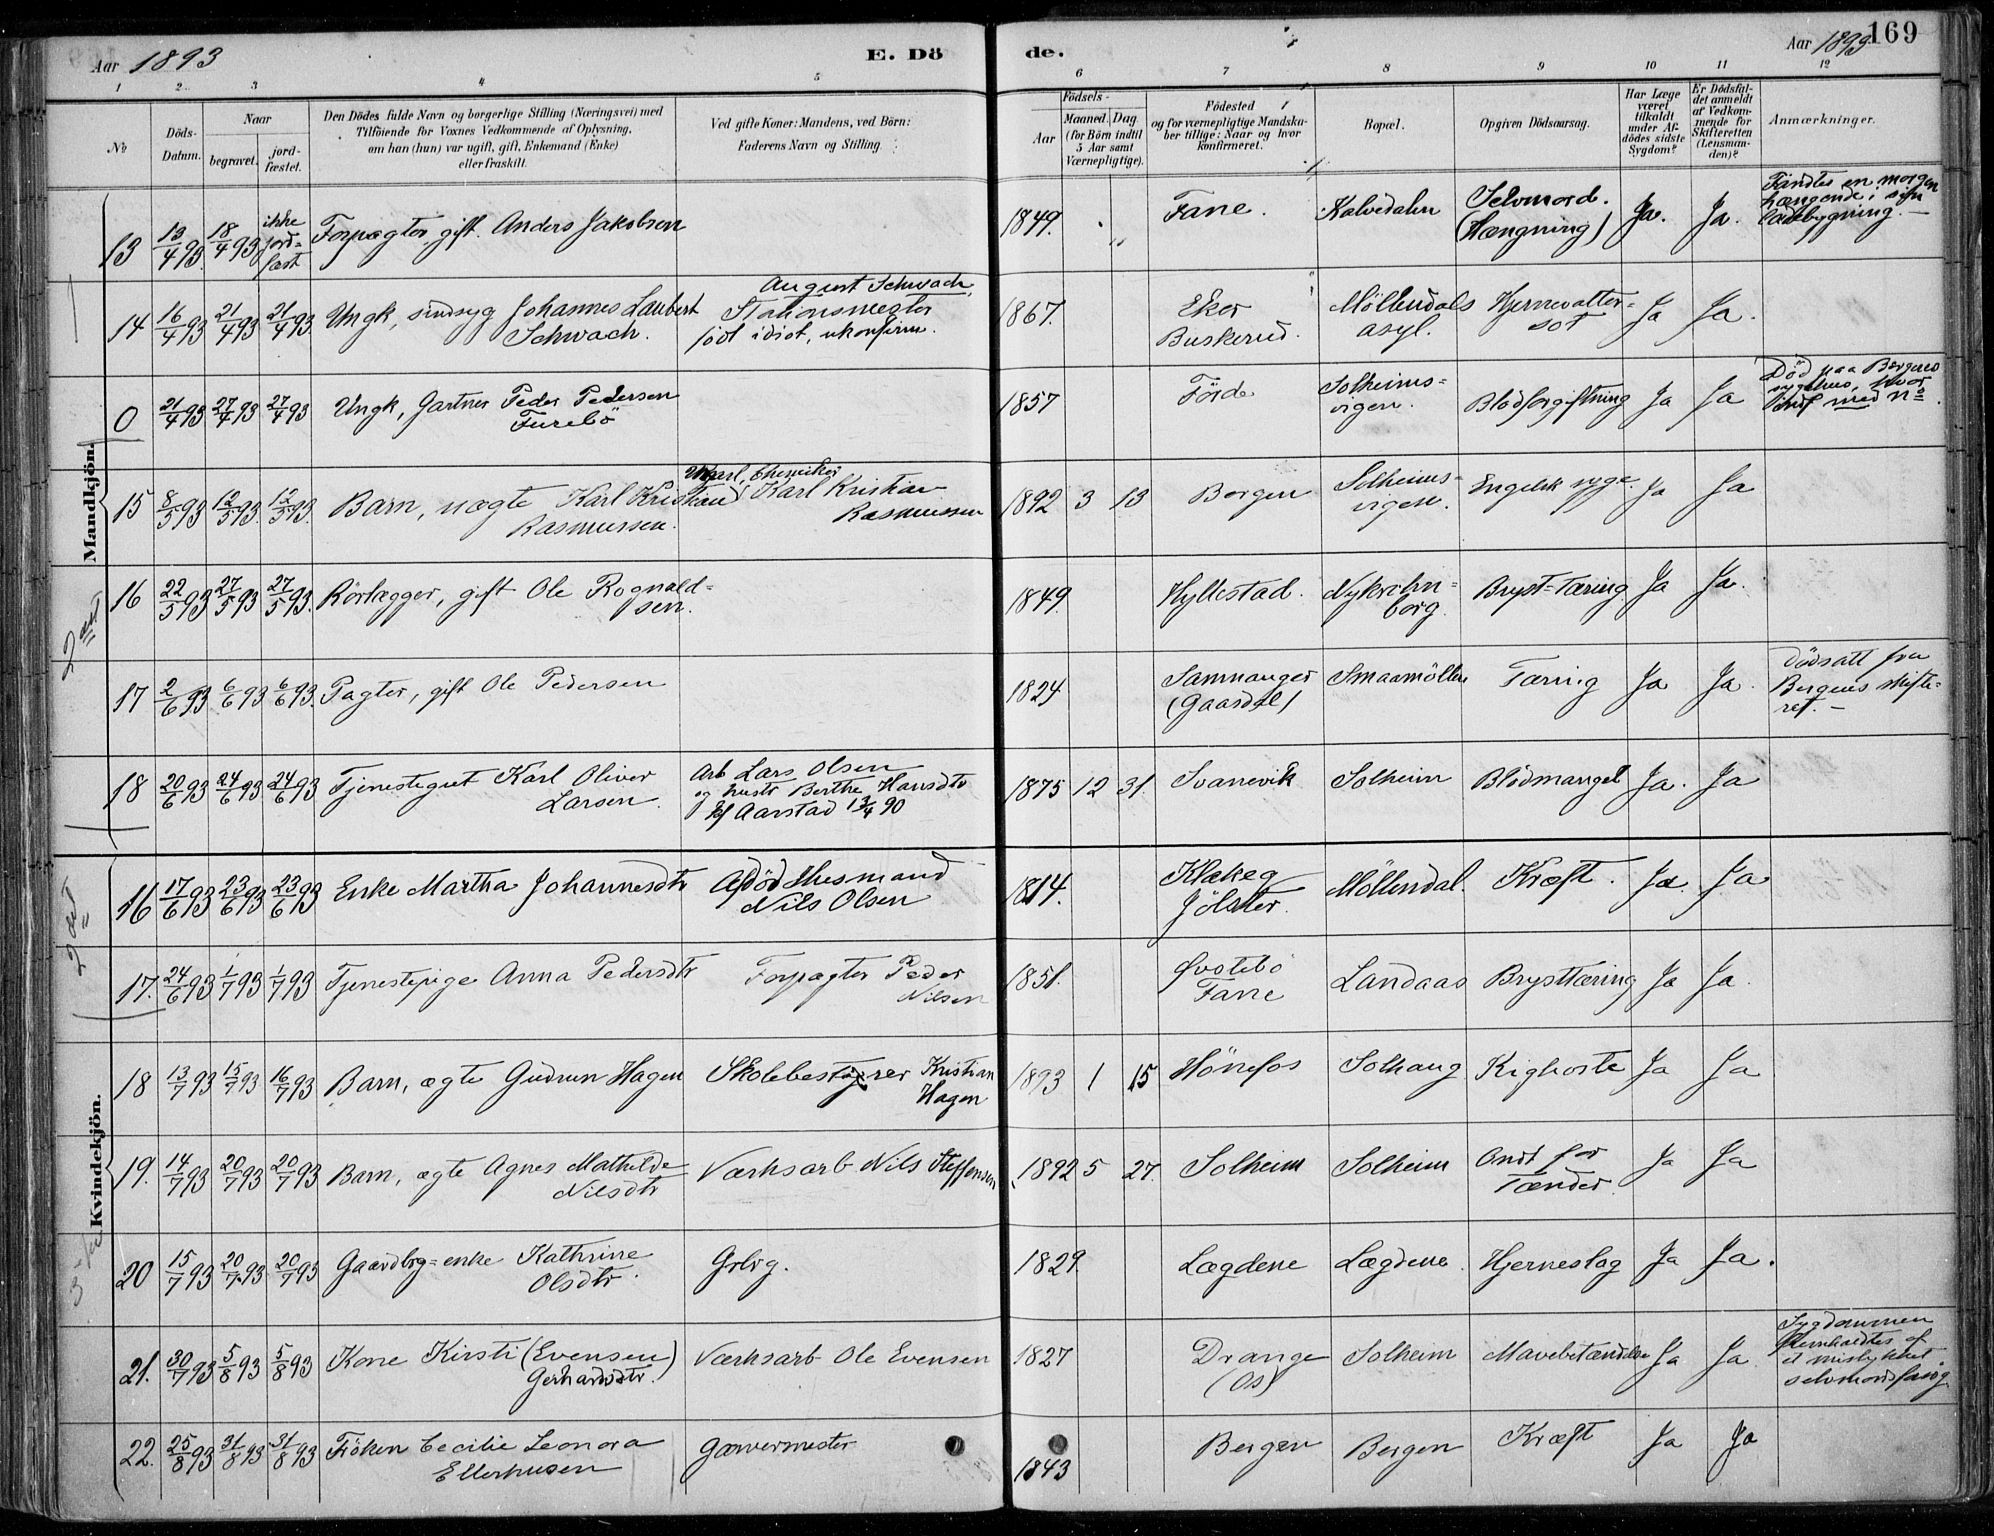 Aar 1893
E. Dö de.
Aar 1893 169
1 2 3 4 5 6 7 8 9 10 11 12
No
Döds-Datum.
Naar
begravet. jord-fæstet.
Den Dödes fulde Navn og borgerlige Stilling (Næringsvei) med
Tilföiende for Voxnes Vedkommende af Oplysning,
om han (hun) var ugift, gift, Enkemand (Enke)
eller fraskilt.
Ved gifte Koner: Mandens, ved Börn:
Faderens Navn og Stilling.
Födsels-
Aar Maaned. Dag.
(for Börn indtil
5 Aar samt
Værnepligtige).
Födested
og for værnepligtige Mandska-
ber tillige: Naar og hvor
konfirmeret.
Bopæl.
Opgiven Dödsaarsag.
Har Læge
været
tilkaldt
under Af-
dödes sidste
Sygdom?
Er Dödsfal-
det anmeldt
af Vedkom-
mende for
Skifteretten
(Lensman-
den)?
Anmærkninger.
Mandkjön.
13 13/4 93. 18/4 93 ikke jord-fæst Forpagter, gift. Anders Jakobsen 1849. Fane. Kalvedalen Selvmord. (Hængning) Ja. Ja. Fandtes en morgen hængende i sin ladebygning. —
14 16/4 93 21/4 93 21/4 93. Ungk, sindsyg Johannes Laubert Schwach. August Schwach, Stationsmester födt idiot, ukonfirm. 1867. Eker Buskerud. Möllendals asyl. Hjernevatter-sot Ja Ja.
0 21/4 93 27/4 93 27/4 93 Ungk, Gartner Peder Pedersen Furebö 1857 Förde Solheims-vigen. Blodforgiftning Ja Ja Död paa Bergens sygehus, hvor indf med No.
15 8/5 93 12/5 93. 12/5 93. Barn, uægte Karl Kristian Rasmussen. Ungkarl, Chemiker Karl Kristian Rasmussen 1892 3 13 Bergen Solheims-vigen. Engelsk syge Ja Ja
16 22/5 93 27/5 93 27/5 93. Rörlægger, gift Ole Rognald-sen. 1849. Hyllestad. Nykrohn-borg. Bryst-Tæring Ja Ja.
17 2/6 93 6/6 93 6/6 93. Pagter, gift Ole Pedersen 1824 Samnanger (Gaasdal) Smaamöllen Tæring Ja Ja. Dödsatt fra Bergens skifte-ret. —
18 20/6 93 24/6 93 24/6 93 Tjenestegut Karl Oliver Larsen. Arb Lars Olsen og hustr Berthe Hansdtr kf Aarstad 13/4 90 1875 12 31. Svanevik Solheim Blodmangel Ja. Ja
Kvindekjön.
16 17/6 93 23/6 93 23/6 93 Enke Martha Johannesdtr Afdöd Husmand Nils Olsen 1814. Klakeg Jölster. Möllendal. Kræft. Ja. Ja
17. 24/6 93 1/7 93 1/7 93 Tjenestepige Anna Pedersdtr Forpagter Peder Nilsen 1851. Övstebö Fane Landaas Brysttæring Ja Ja.
18 13/7 93 15/7 93 16/7 93 Barn, ægte Gudrun Hagen Skolebestyrer Kristian Hagen 1893 1 15 Hönefos Solhaug Kighoste Ja Ja
19. 14/7 93 20/7 93 20/7 93 Barn, ægte Agnes Mathilde Nilsdtr Værksarb Nils Steffensen 1892 5 27. Solheim Solheim Ondt for Tænder. Ja Ja
20 15/7 93 20/7 93. 20/7 93 Gaardbrg-enke Kathrine Olsdtr. Grbrg. 1829. Lægdene Lægdene. Hjerneslag Ja Ja.
21. 30/7 93 5/8 93 5/8 93 Kone Kirsti (Evensen) Gerhardsdtr. Værksarb Ole Evensen 1827 Drange (Os) Solheim Mavebetændelse Ja Ja. Sygdommen fremkaldtes af et mislykket selvmordsforsög
22. 25/8 93 31/8 93 31/8 93 Fröken Cecilie Leonora Ellerhusen Garvermester 1843 Bergen Bergen Kræft Ja Ja